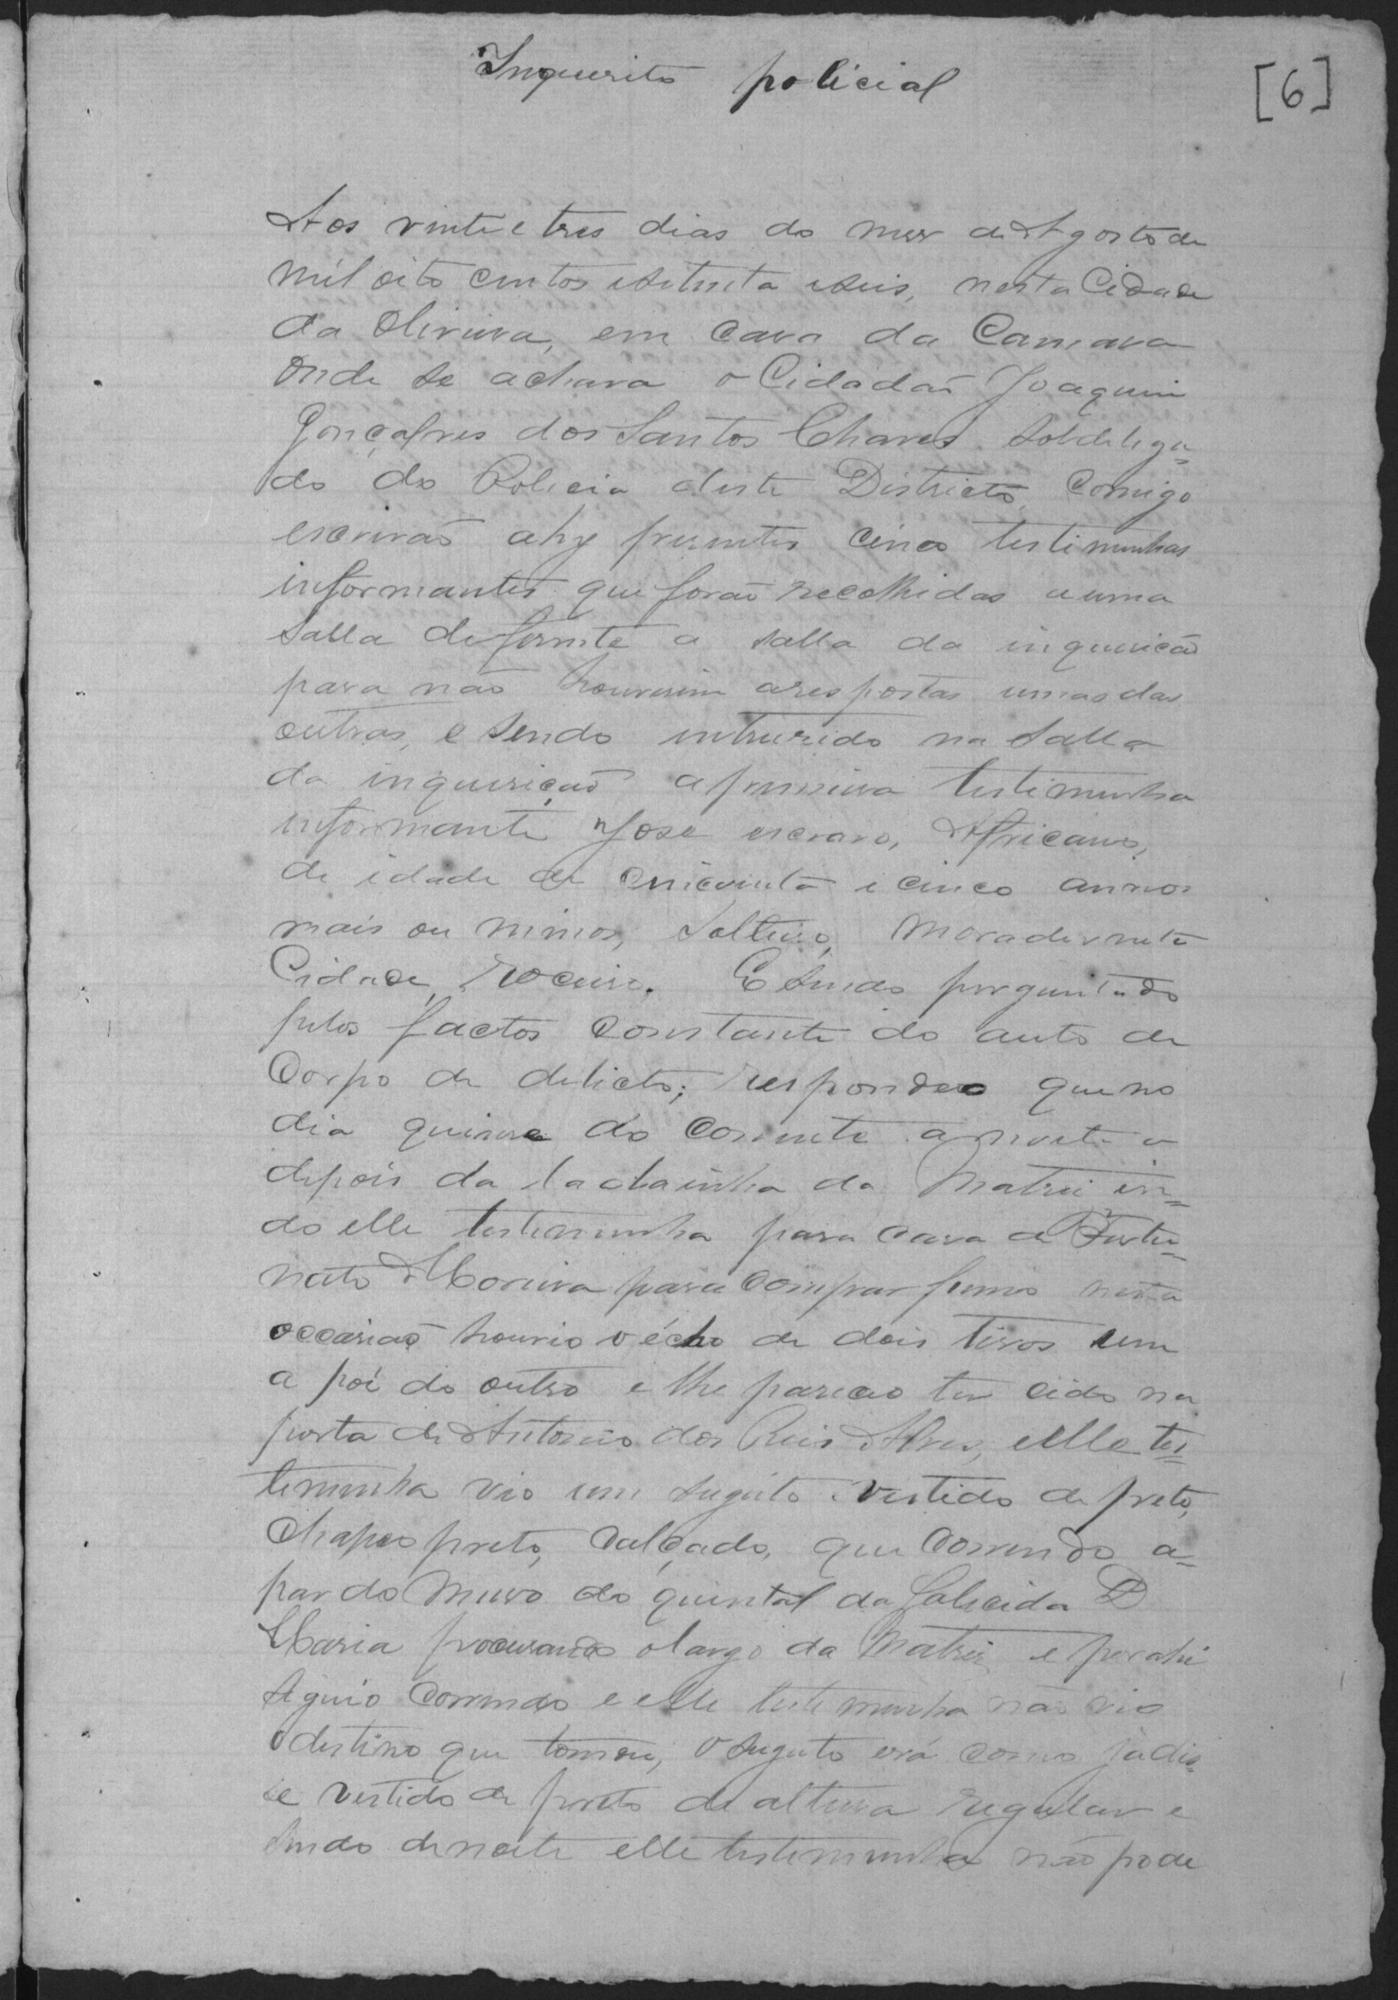 Inquerito policial
[6]
Aos vinte e tres dias do mez de Agosto de
mil oito centos e setenta e seis, nesta Cidade
da Oliveira, em caza da Camara
onde se achava o Cidadaõ Joaquim
Gonçalves dos Santos Chaves Sobdelega=
do do Policia deste Districto, Comigo
escrivaõ ahy prezentes cinco testimunhas
informantes que foraõ recolhidas a uma
salla defronte a salla da inquirição
para naõ houverem as respostas umas das
outras, e sendo intruzido na salla
da inquiriçaõ a primeira testimunha
informante José escravo, Africano,
de idade de cincoenta e cinco annos
mais ou menos, Solteiro, morador nesta
Cidade, roceiro. E sendo perguntado
pelos factos constante do auto de
Corpo de delicto; respondeo que no
dia quinze do corrente a noute
depois da ladainha da Matriz in=
do elle testemunha para caza de Fortu=
nato Moreira para comprar fumo nesta
occaziaõ houvio o écho de dois tiros um
a poi do outro e lhe pareceo ter cido na
porta de Antonio dos Reis Alves, e elle tes=
temunha vio um sugeito vestido de preto,
chapeo preto, calçado, que correndo a=
par do muro do quintal da falicida D
Maria procurando o largo da Matriz e por ahi
seguio correndo e elle testemunha naõ vio
o destino que tomou, o sugeito erá como já dis=
se vestido de preto de altura regular e
sendo de noite elle testemunha não pode